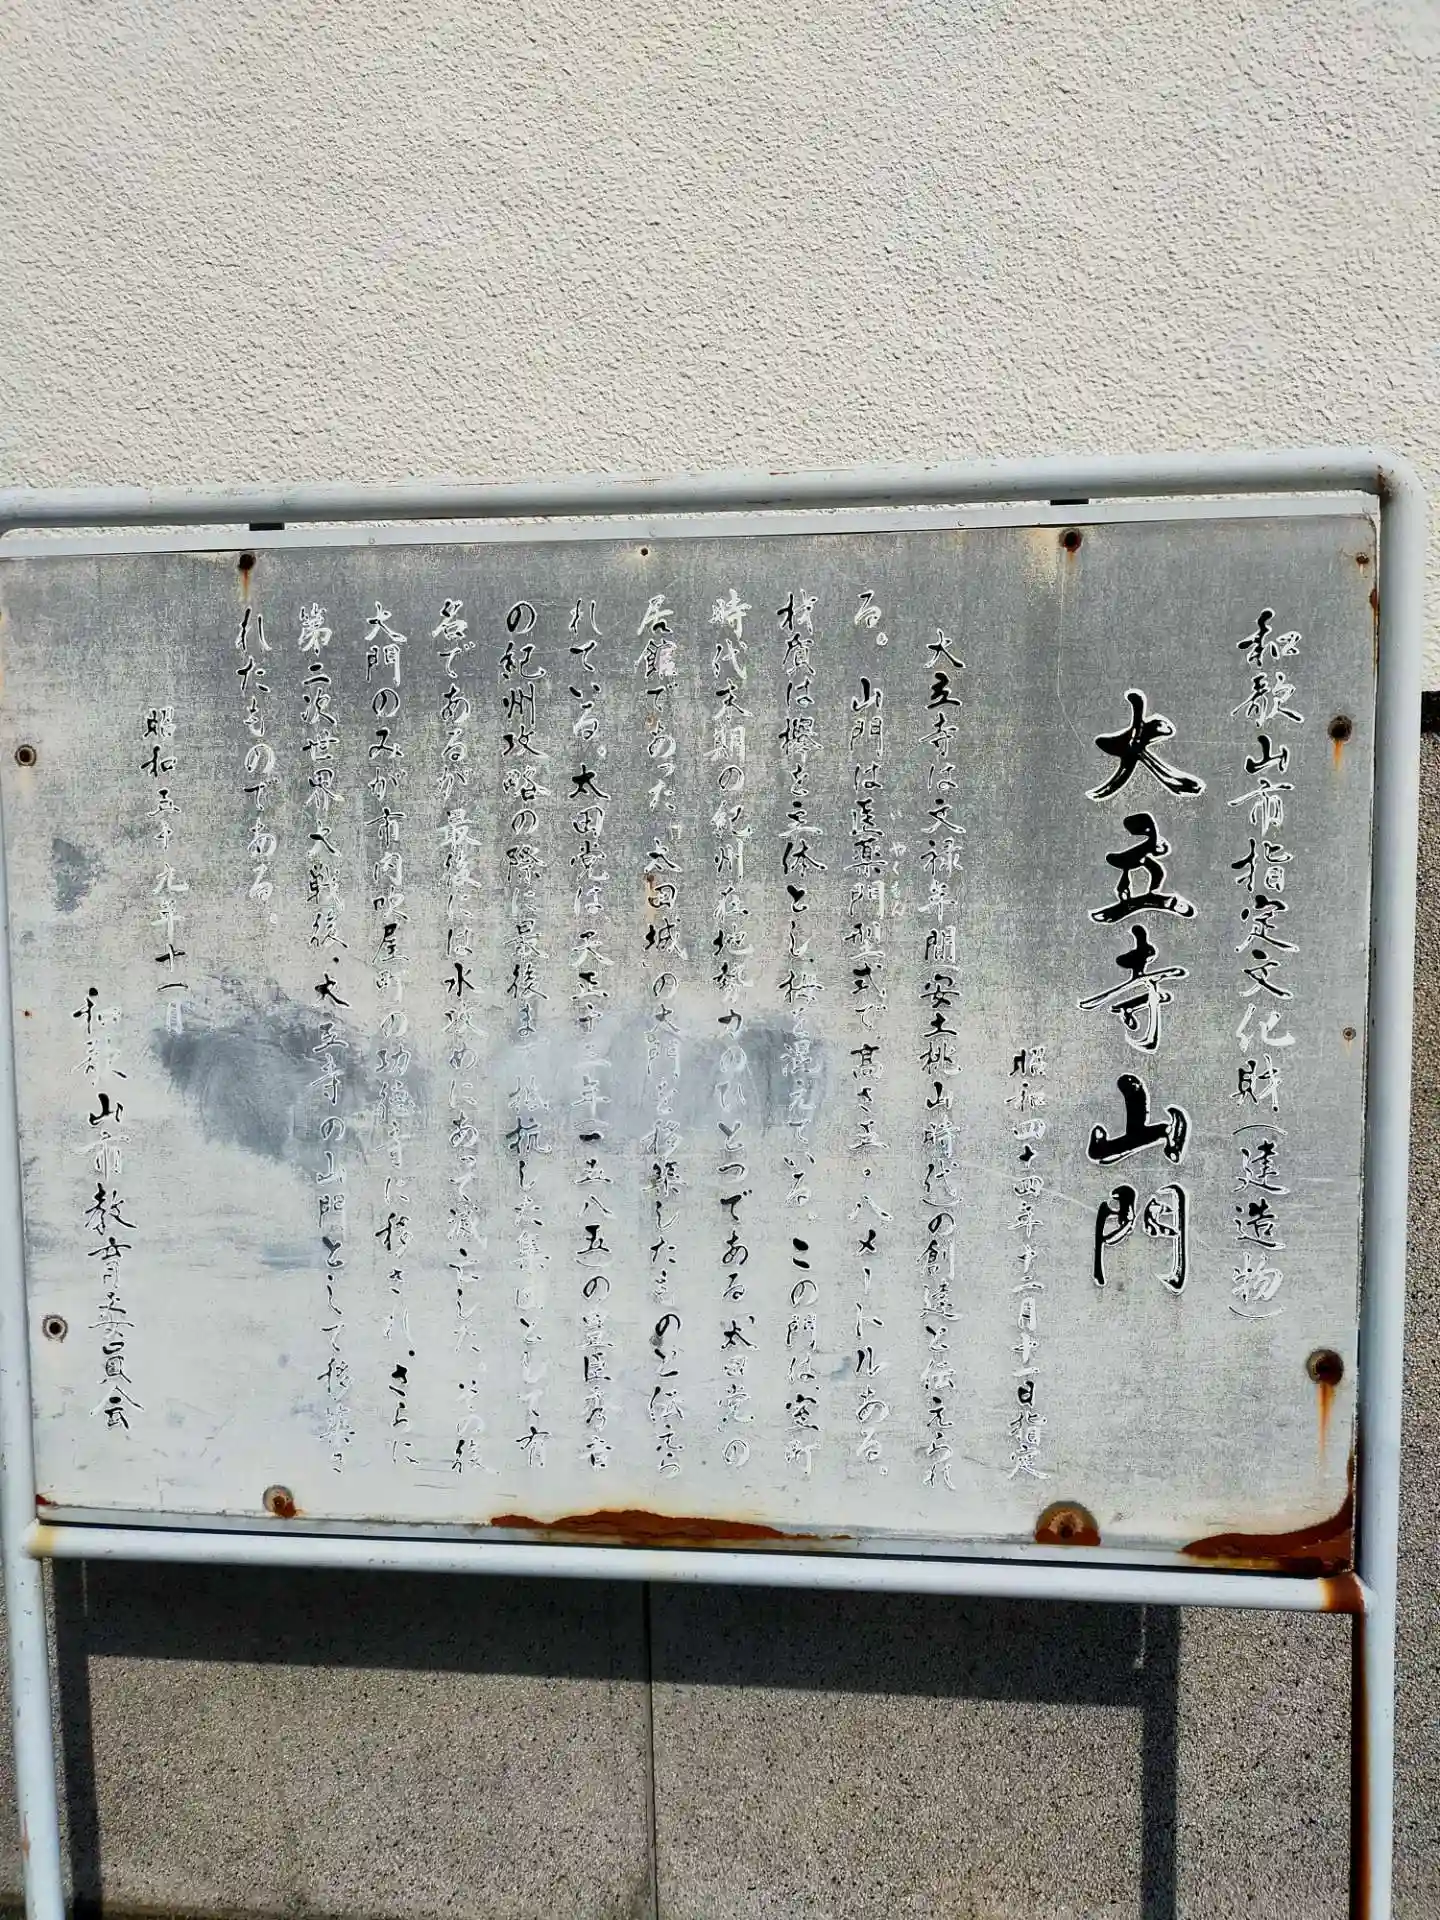 和歌山市指定文化財(建造物)
大立寺山門
昭和四十四年十二月十一日指定
大立寺は文禄年間(安土桃山時代)の創建と伝えられ
る。山門は医薬門型式で高さ五・八メートルある。
やくもん
材質は欅を主体とし栂を混えている。この門は、室町
時代末期の紀州在地勢力のひとつである「太田党」の
居館であった「太田城」の大門を移築したものと伝えら
れている。太田党は天正十三年(一五八五)の豊臣秀吉
の紀州攻略の際に最後まで抵抗した集団として、有
名であるが最後には水攻めにあって滅亡した。この後
大門のみが市内吹屋町の功徳寺に移され、さらに
第二次世界大戦後、大立寺の山門として移築さ
れたものである。
昭和五十九年十一月
和歌山市教育委員会